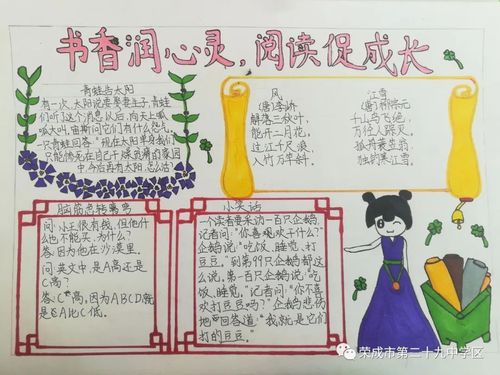 书香润心灵，阅读促成长
青蛙与太阳
有一次，太阳说要娶妻生子，青蛙
们听了这个消息后，向天上喊
喊大叫，宙斯问它们有什么怨气，
一只青蛙回答"现在太阳单身我们
只能惨死在自己干燥贫瘠的家园
中，今后再有太阳，怎么活
风
(唐)李峤
解落三秋叶，
能开二月花，
过江千尺浪，
入竹万竿斜。
江雪
(唐)柳宗元
千山鸟飞绝，
万径人踪灭。
孤舟蓑笠翁，
独钓寒江雪。
脑筋急转弯
问：小王很有钱，但他什
么也不能买，为什么？
答：因为他在沙漠里。
问：英文中，是A高还是
C高？
答：C高，因为ABCD就
是A比C低。
小笑话
一个读者要采访一百只企鹅，
记者问："你喜观欢干什么？"
企鹅说："吃饭、睡觉、打
豆豆。"到第99只企鹅都这
么说，第一百只企鹅说："吃
饭、睡觉，"记者问："你不喜
欢打豆豆吗？"企鹅悲伤
地回答道："我就是它们
打的豆豆。"
荣成市第二十九中学区